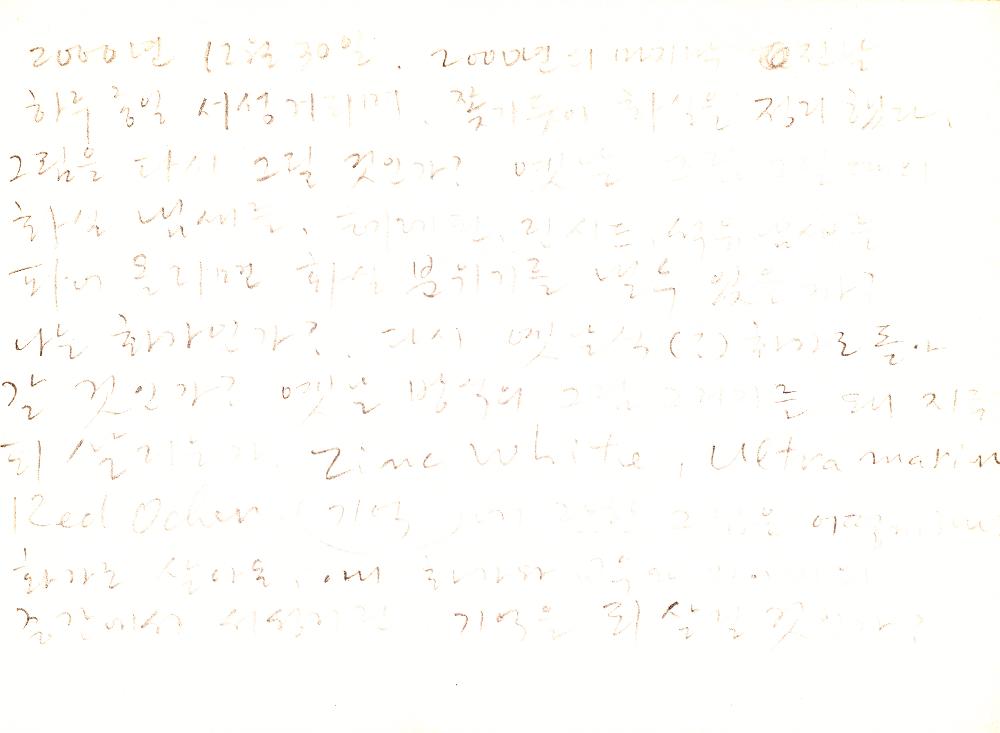 2000년 12월 30일. 2000년의 마지막 전날
하루 종일 서성거리며, 쫓기듯이 화실을 정리했다.
그림을 다시 그릴 것인가? 옛날 그림 그릴때의
화실 냄새를, 테레핀, 린시드, 석유 냄새를
피어 올리면 화실 분위기를 낼 수 있을까?
나는 화가인가? 다시 옛날식(?) 화가로 돌아
갈 것인가? 옛날 방식의 그림 그리기를 왜 지금
되살리는가. Zinc White, Ultramarin
Red Ocher (기억 그림을
화가로 살아옴, 아니 화가와 교육
중간에서 서성거린 기억을 되살릴 것인가?